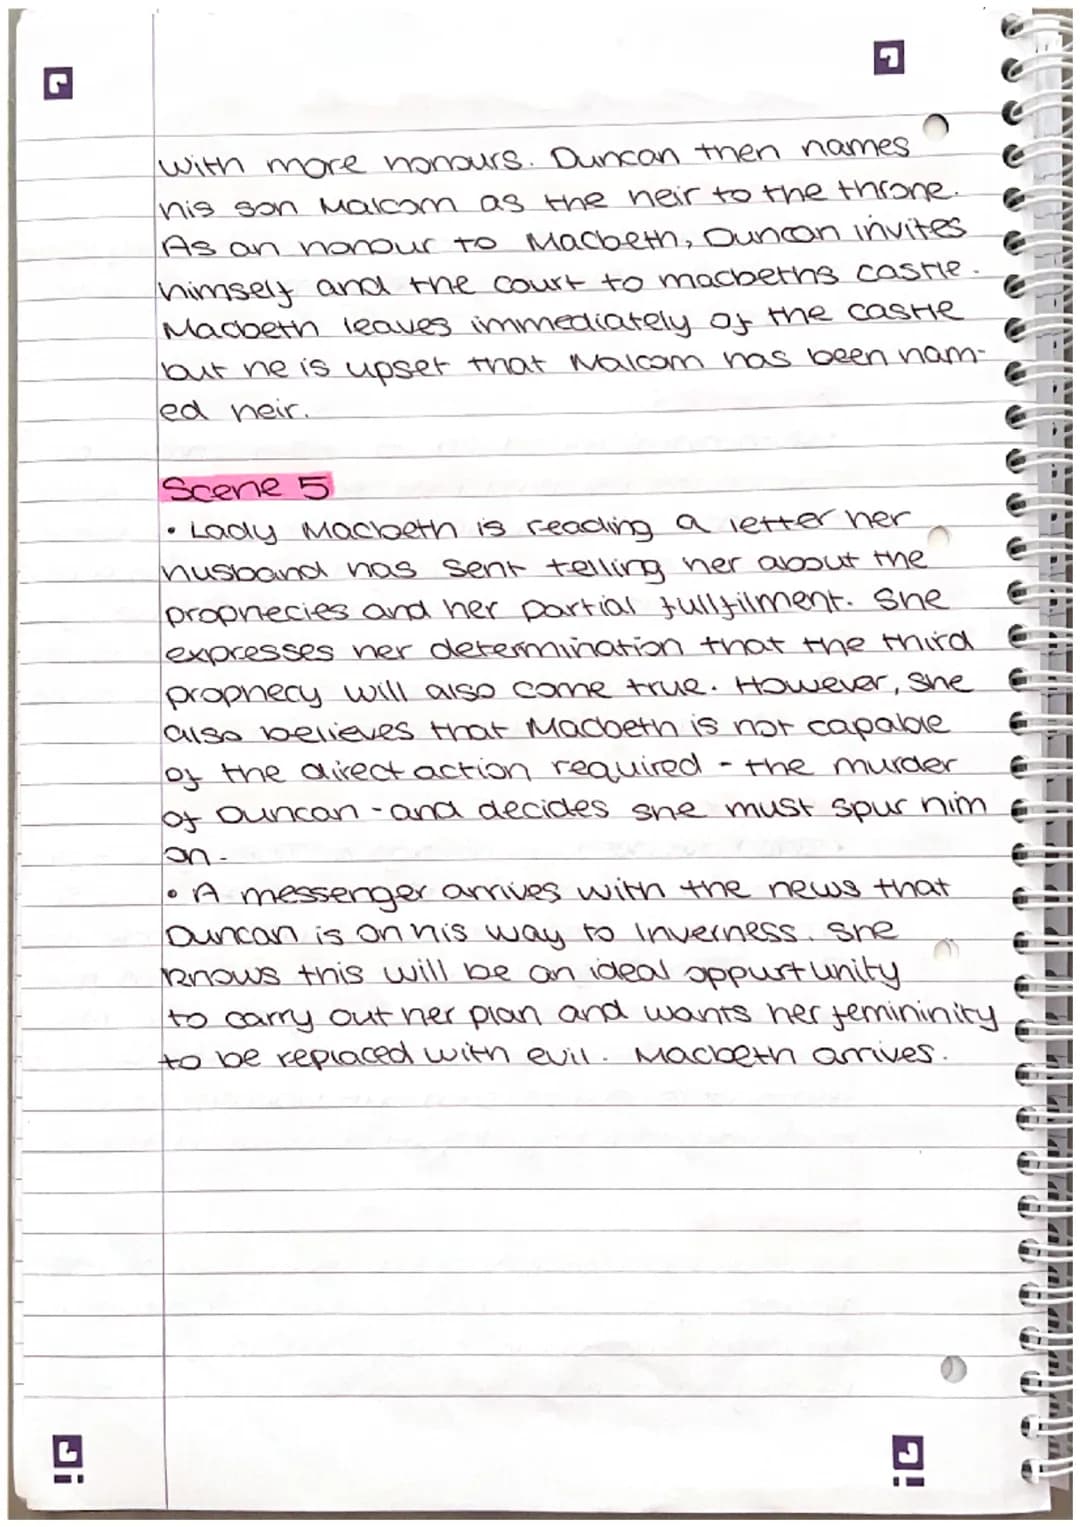 with more honours. Duncan then names
his son Malcom as the heir to the throne.
As an honour to Macbeth, Duncan invites
himself and the court to macbeths castle.
Macbeth leaves immediately of the castle
but he is upset that Malcom has been nam-
ed heir.
Scene 5
• Lady Macbeth is reading a letter her
husband has sent telling her about the
prophecies and her partial fullfilment. She
expresses her determination that the third
prophecy will also come true. However, she
also believes that Macbeth is not capable
of the direct action required - the murder
of Duncan - and decides she must spur him
on.
• A messenger arrives with the news that
Duncan is on his way to Inverness. She
knows this will be an ideal oppurtunity
to carry out her plan and wants her femininity
to be replaced with evil. Macbeth arrives.